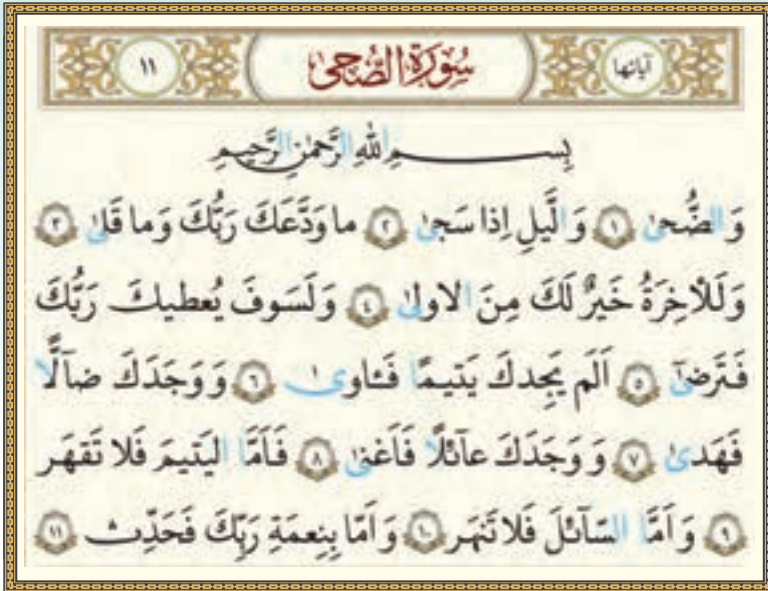 آياتها سُورَةُ الضُّحى ١١
بِسمِ اللهِ الرَّحمٰنِ الرَّحيمِ
وَ الضُّحىٰ ١ وَ الَّيلِ اِذا سَجىٰ ٢ ما وَدَّعَكَ رَبُّكَ وَ ما قَلىٰ ٣
وَ لَلآخِرَةُ خَيرٌ لَكَ مِنَ الاولىٰ ٤ وَ لَسَوفَ يُعطيكَ رَبُّكَ
فَتَرضىٰٓ ٥ اَلَم يَجِدكَ يَتيمًا فَـٔاوىٰ ٦ وَ وَجَدَكَ ضآلًّا
فَهَدىٰ ٧ وَ وَجَدَكَ عآئلًا فَاَغنىٰ ٨ فَاَمَّا اليَتيمَ فَلا تَقهَر
٩ وَ اَمَّا السّآئلَ فَلا تَنهَر ١٠ وَ اَمّا بِنِعمَةِ رَبِّكَ فَحَدِّث ١١